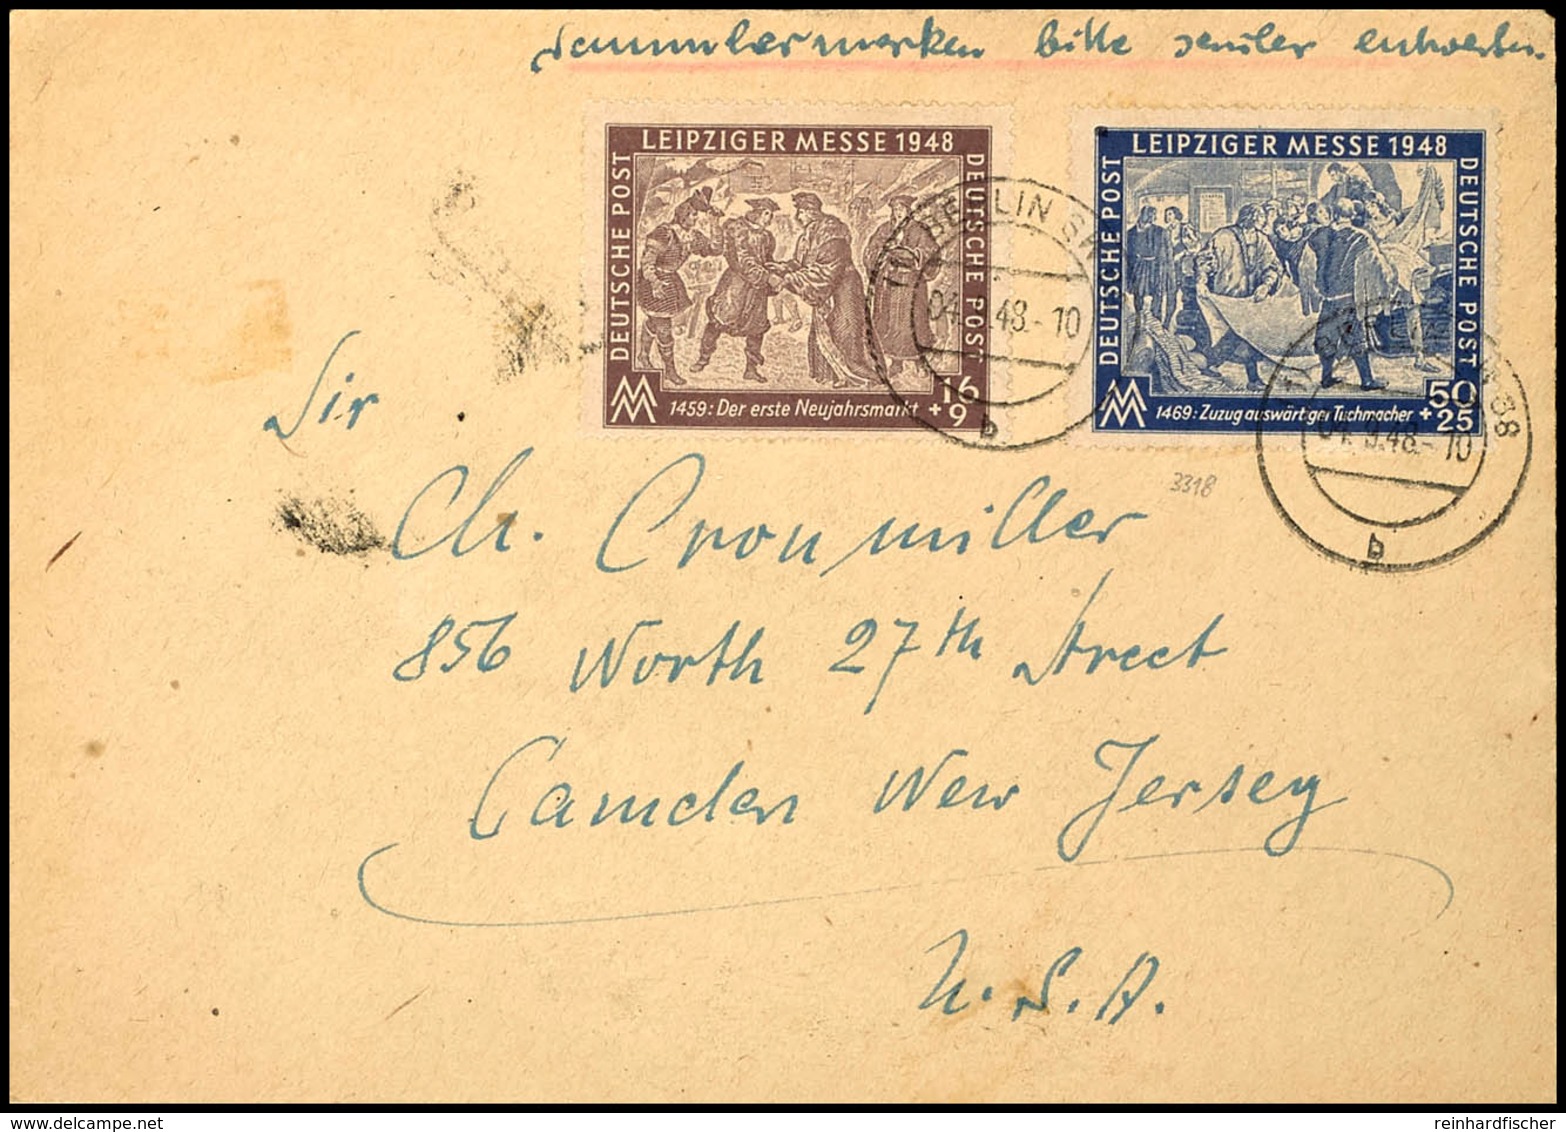 Sammlermarken bitte sauber entwerten.
LEIPZIGER MESSE 1948
DEUTSCHE POST
DEUTSCHE POST
MM
1459: Der erste Neujahrsmarkt
16
+ 9
LEIPZIGER MESSE 1948
DEUTSCHE POST
DEUTSCHE POST
MM
1469: Zuzug auswärtiger Tuchmacher
50
+ 25
BERLIN SW
04. 9.48.- 10
b
BERLIN
88
04. 9.48.- 10
b
3318
Sir
Ch. Cronmiller
856 North 27th Street
Camden New Jersey
U.S.A.
delcampe.net
reinhardfischer